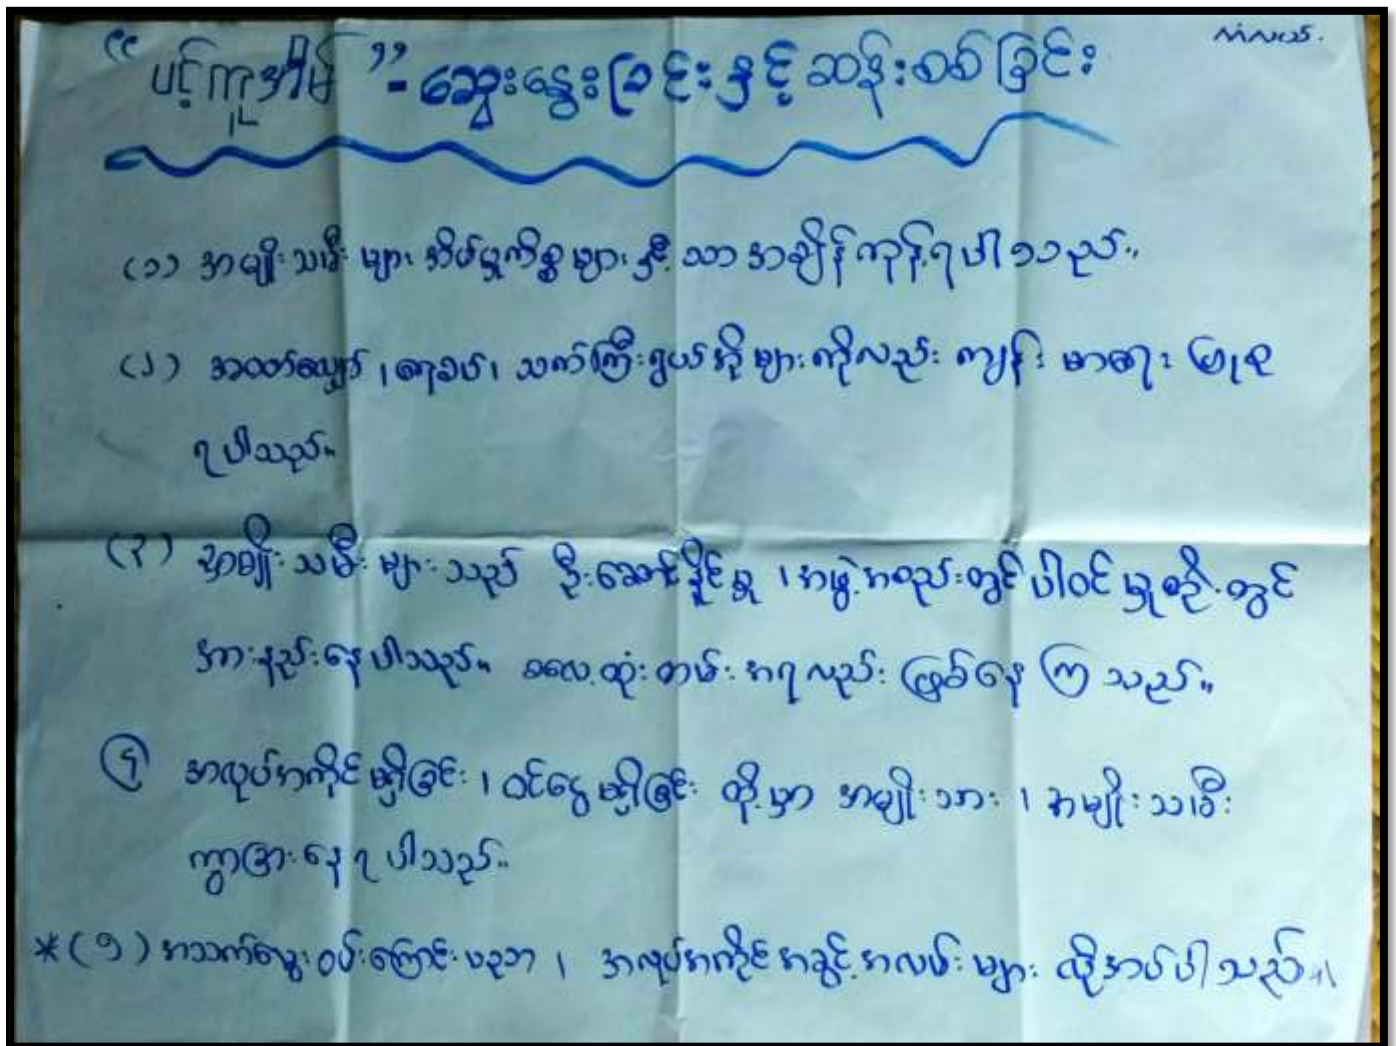 “ပင့်ကူအိမ်”-ဆွေးနွေးခြင်းနှင့်ဆန်းစစ်ခြင်း
(၁) အမျိုးသမီးများ အိမ်မှုကိစ္စများနှင့်သာ အချိန်ကုန်ရပါသည်။
(၂) အထက်လျှောက်၊ ၊ သက်ကြီးရွယ်အိုများကိုလည်း ကျန်းမာရေး ပြုစု
ရပါသည်။
(၃) အမျိုးသမီးများသည် ဦးဆောင်နိုင်မှု၊ အဖွဲ့အစည်းတွင် ပါဝင်မှုစဉ်းတွင်
အားနည်းနေပါသည်။ ဓလေ့ထုံးတမ်းအရလည်း ဖြစ်နေကြသည်။
၄ အလုပ်အကိုင်မရှိခြင်း၊ ဝင်ငွေမရှိခြင်း တို့မှာ အမျိုးသား၊ အမျိုးသမီး
ကွာခြားနေရပါသည်။
*(၅) အသက်မွေးဝမ်းကြောင်းပညာ၊ အလုပ်အကိုင်အခွင့်အလမ်းများ လိုအပ်ပါသည်။